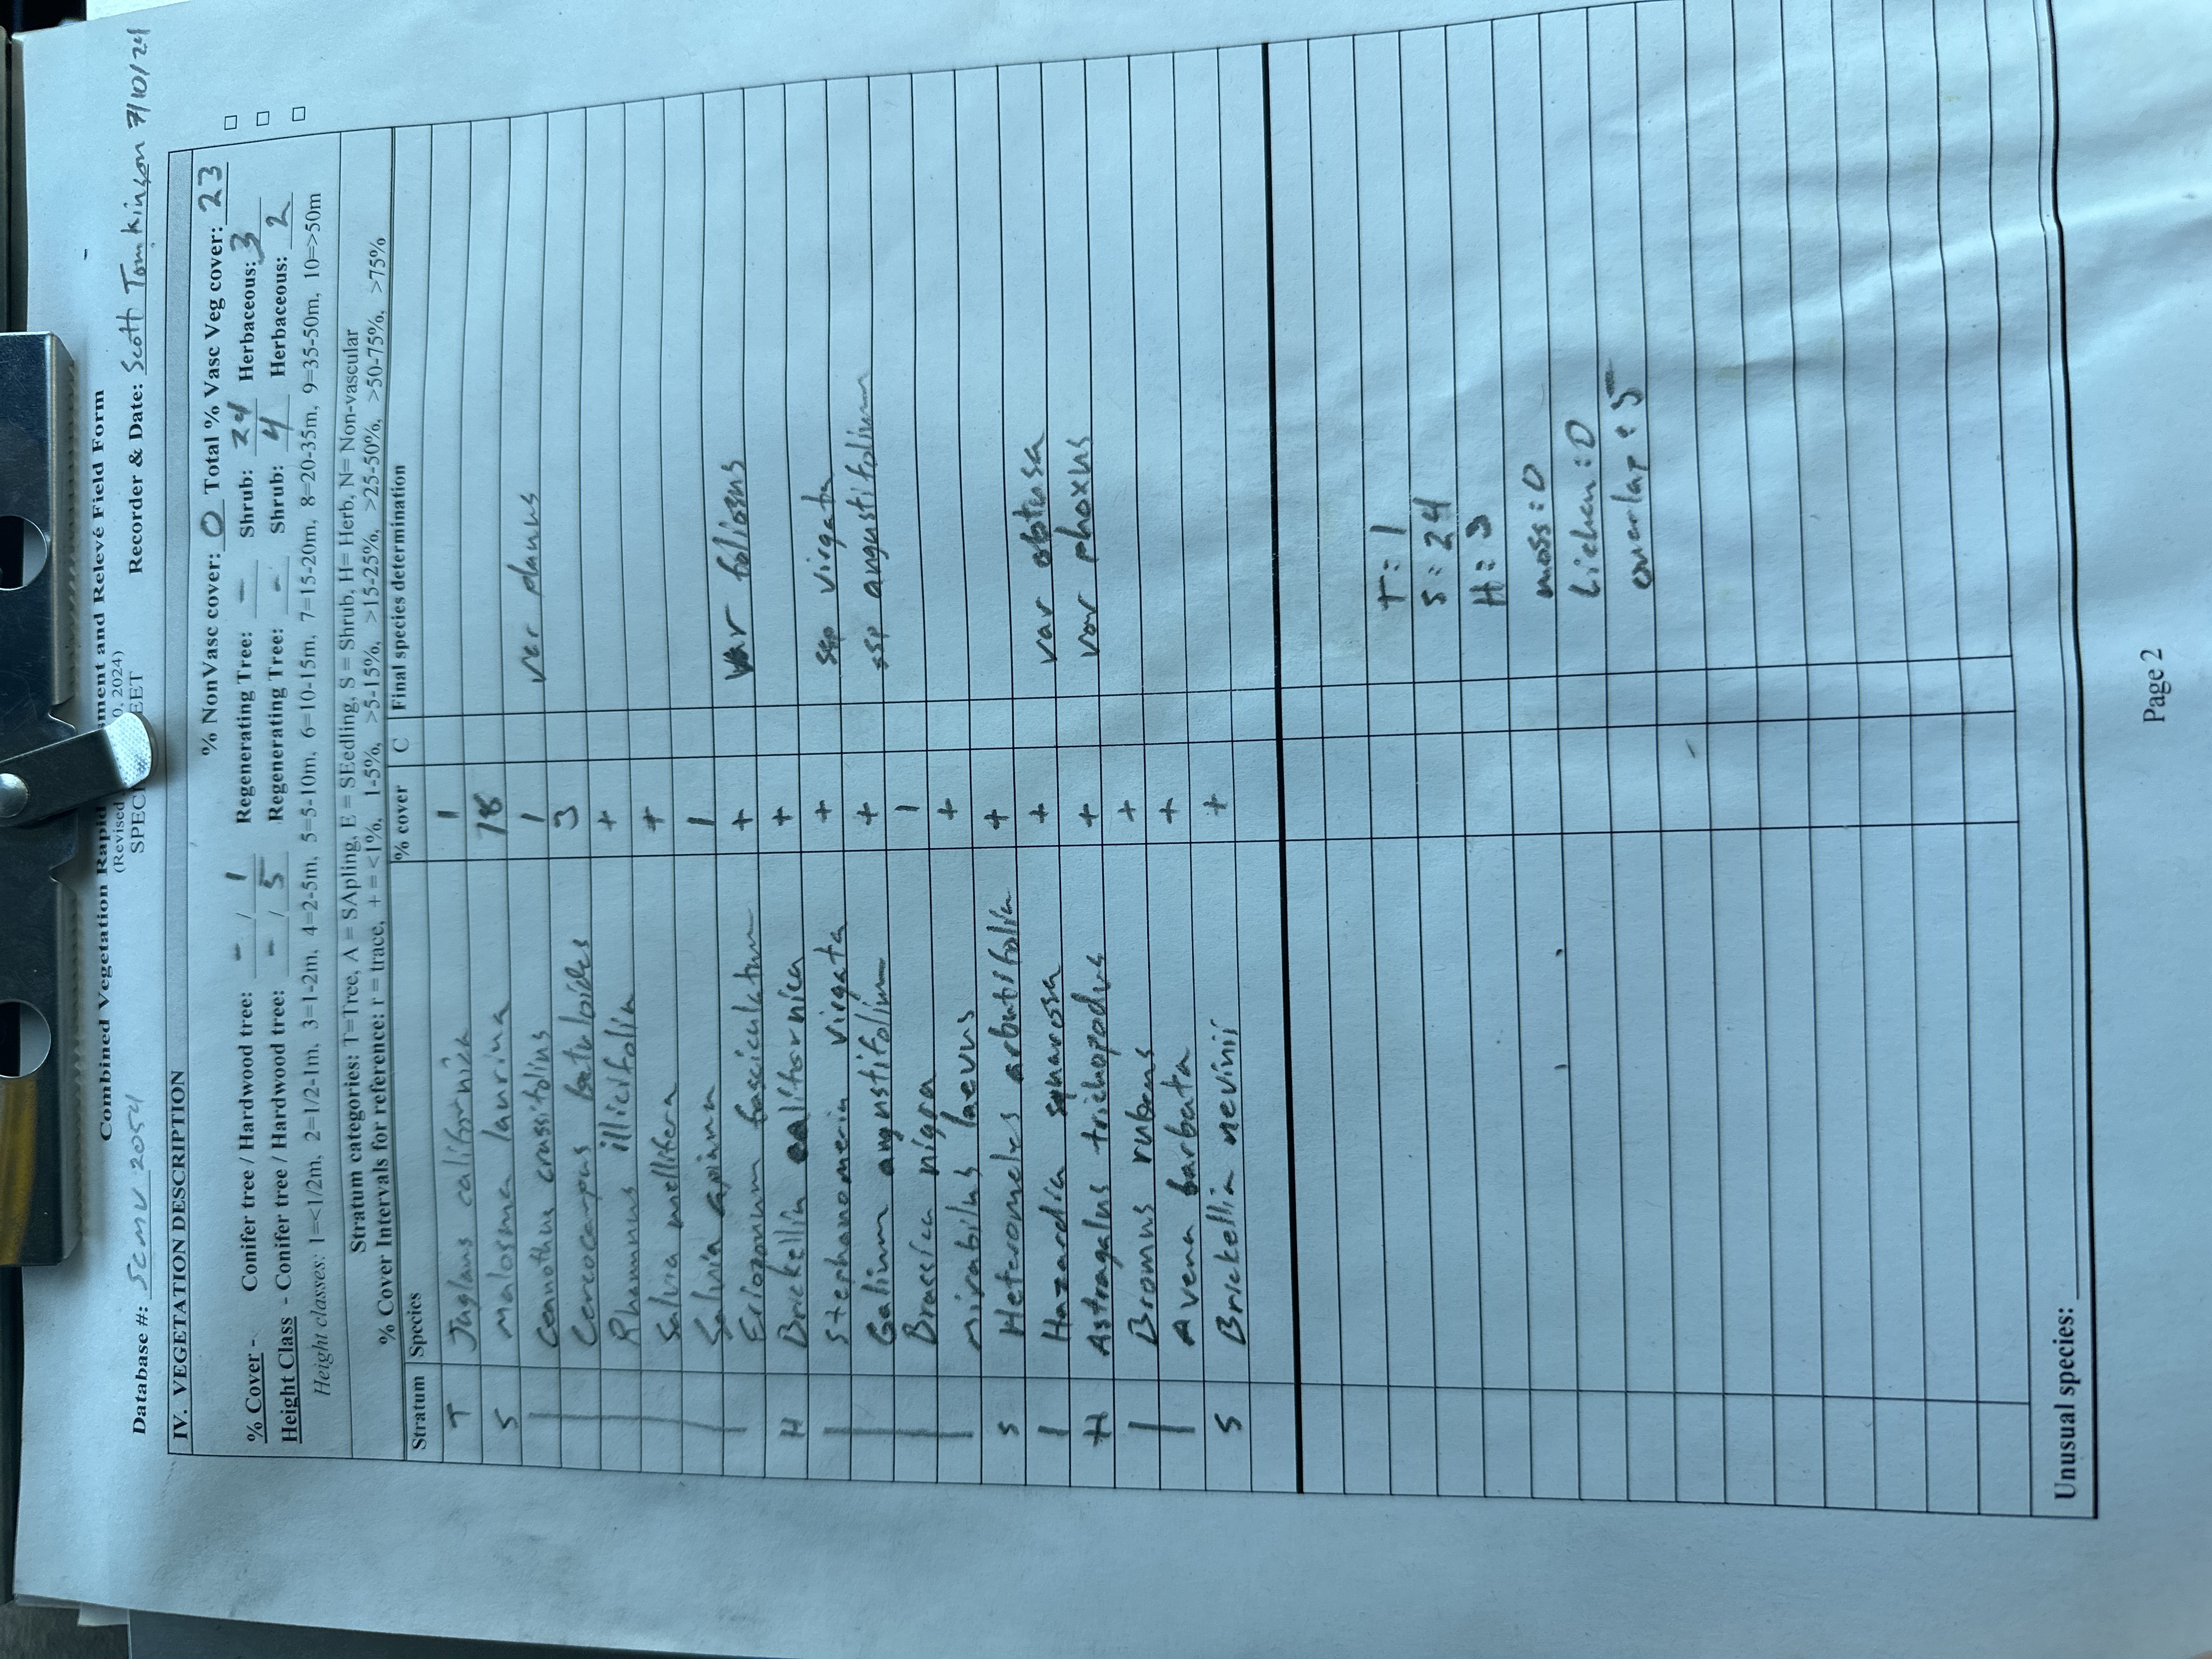 Combined Vegetation Rapid ment and Relevé Field Form
(Revised 0, 2024)
SPECI EET
Database #: SCMV 2054 Recorder & Date: Scott Tomkinson 7/10/24
IV. VEGETATION DESCRIPTION
% NonVasc cover: 0 Total % Vasc Veg cover: 23 □
% Cover - Conifer tree / Hardwood tree: - / 1 Regenerating Tree: - Shrub: 24 Herbaceous: 3 □
Height Class - Conifer tree / Hardwood tree: - / 5 Regenerating Tree: - Shrub: 4 Herbaceous: 2 □
Height classes: 1=<1/2m, 2=1/2-1m, 3=1-2m, 4=2-5m, 5=5-10m, 6=10-15m, 7=15-20m, 8=20-35m, 9=35-50m, 10=>50m
Stratum categories: T=Tree, A = SApling, E = SEedling, S = Shrub, H= Herb, N= Non-vascular
% Cover Intervals for reference: r = trace, + = <1%, 1-5%, >5-15%, >15-25%, >25-50%, >50-75%, >75%
Stratum Species % cover C Final species determination
T Juglans californica 1
S Malosma laurina 18
| Ceanothus crassifolius 1 var planus
Cercocarpus betuloides 3
Rhamnus illicifolia +
Salvia mellifera +
Salvia apiana 1
Eriogonum fasciculatum + var foliosus
H Brickellia californica +
| Stephanomeria virgata + ssp virgata
Galium angustifolium + ssp angustifolium
Brassica nigra 1
Mirabilus laevus +
S Heteromeles arbutifolia +
| Hazardia squarosa + var obtusa
H Astragalus trichopodus + var phoxus
| Bromus rubens +
Avena barbata +
S Brickellia nevinii +
T: 1
S: 24
H: 3
moss: 0
Lichen: 0
overlap: 5
Unusual species:
Page 2